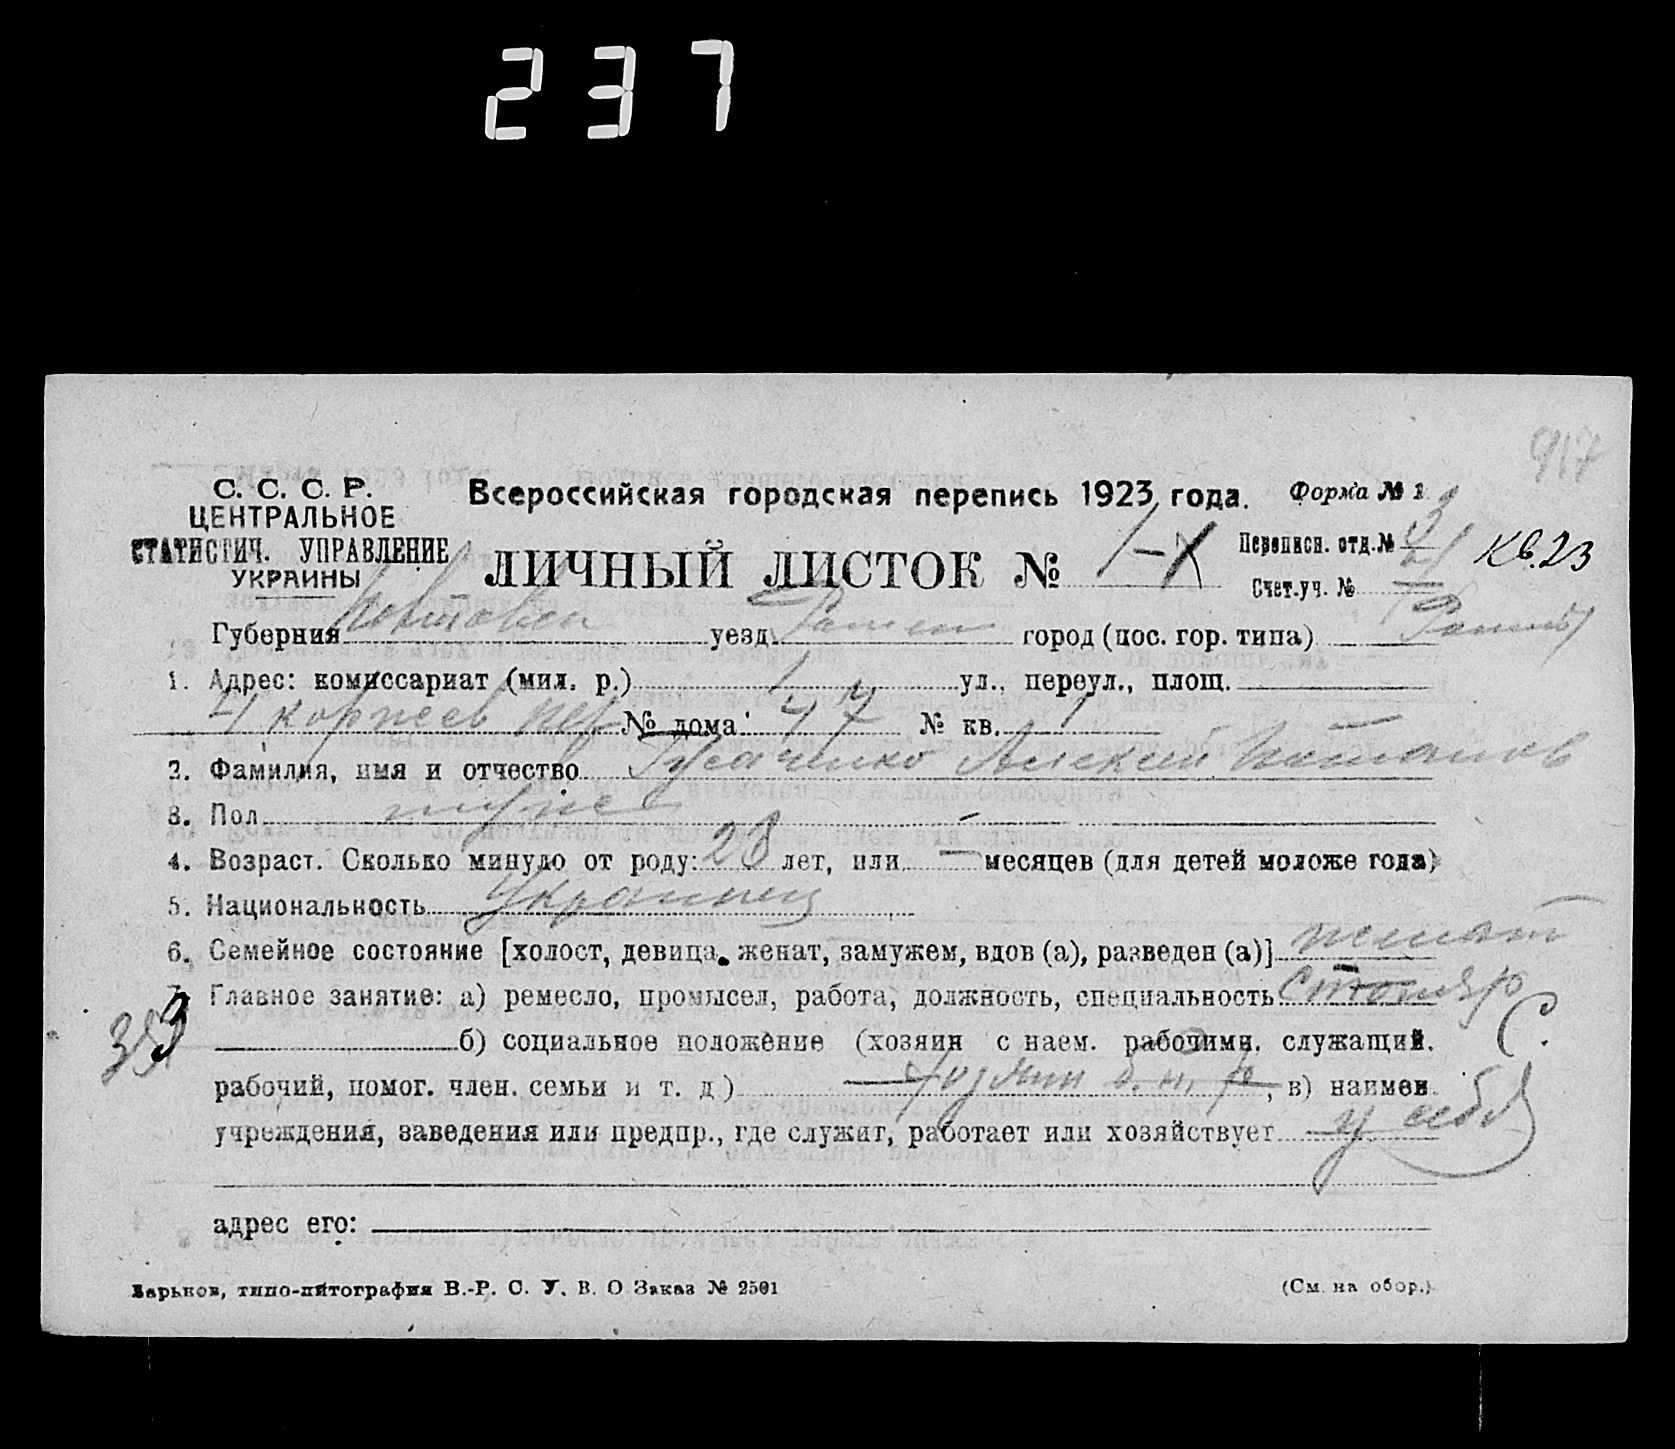 237
917
С. С. С. Р.
ЦЕНТРАЛЬНОЕ
СТАТИСТИЧ. УПРАВЛЕНИЕ
УКРАИНЫ
Всероссийская городская перепись 1923 года.
Форма № 1
ЛИЧНЫЙ ЛИСТОК № 1-
Переписн. отд. № 3
Счет.-уч. № 21
кв. 23
Губерния Полтавск уезд Ромен город (пос. гор. типа) Ромны
1. Адрес: комиссариат (мил. р.) 1 ул., переул., площ.
4 корпеев пер № дома 47 № кв. 1
2. Фамилия, имя и отчество Гусаченко Алексей
3. Пол муже —
4. Возраст. Сколько минуло от роду: 28 лет, или — месяцев (для детей моложе года)
5. Национальность Украинец
6. Семейное состояние [холост, девица, женат, замужем, вдов (а), разведен (а)] женат
7. Главное занятие: а) ремесло, промысел, работа, должность, специальность Столяр
353
б) социальное положение (хозяин с наем. рабочими, служащий, С.
рабочий, помог. член. семьи и т. д) хозяин б. н. р, в) наимен.
учреждения, заведения или предпр., где служит, работает или хозяйствует у себя
адрес его:
Харьков, типо-литография В.-Р. С. У. В. О Заказ № 2501
(См. на обор.)